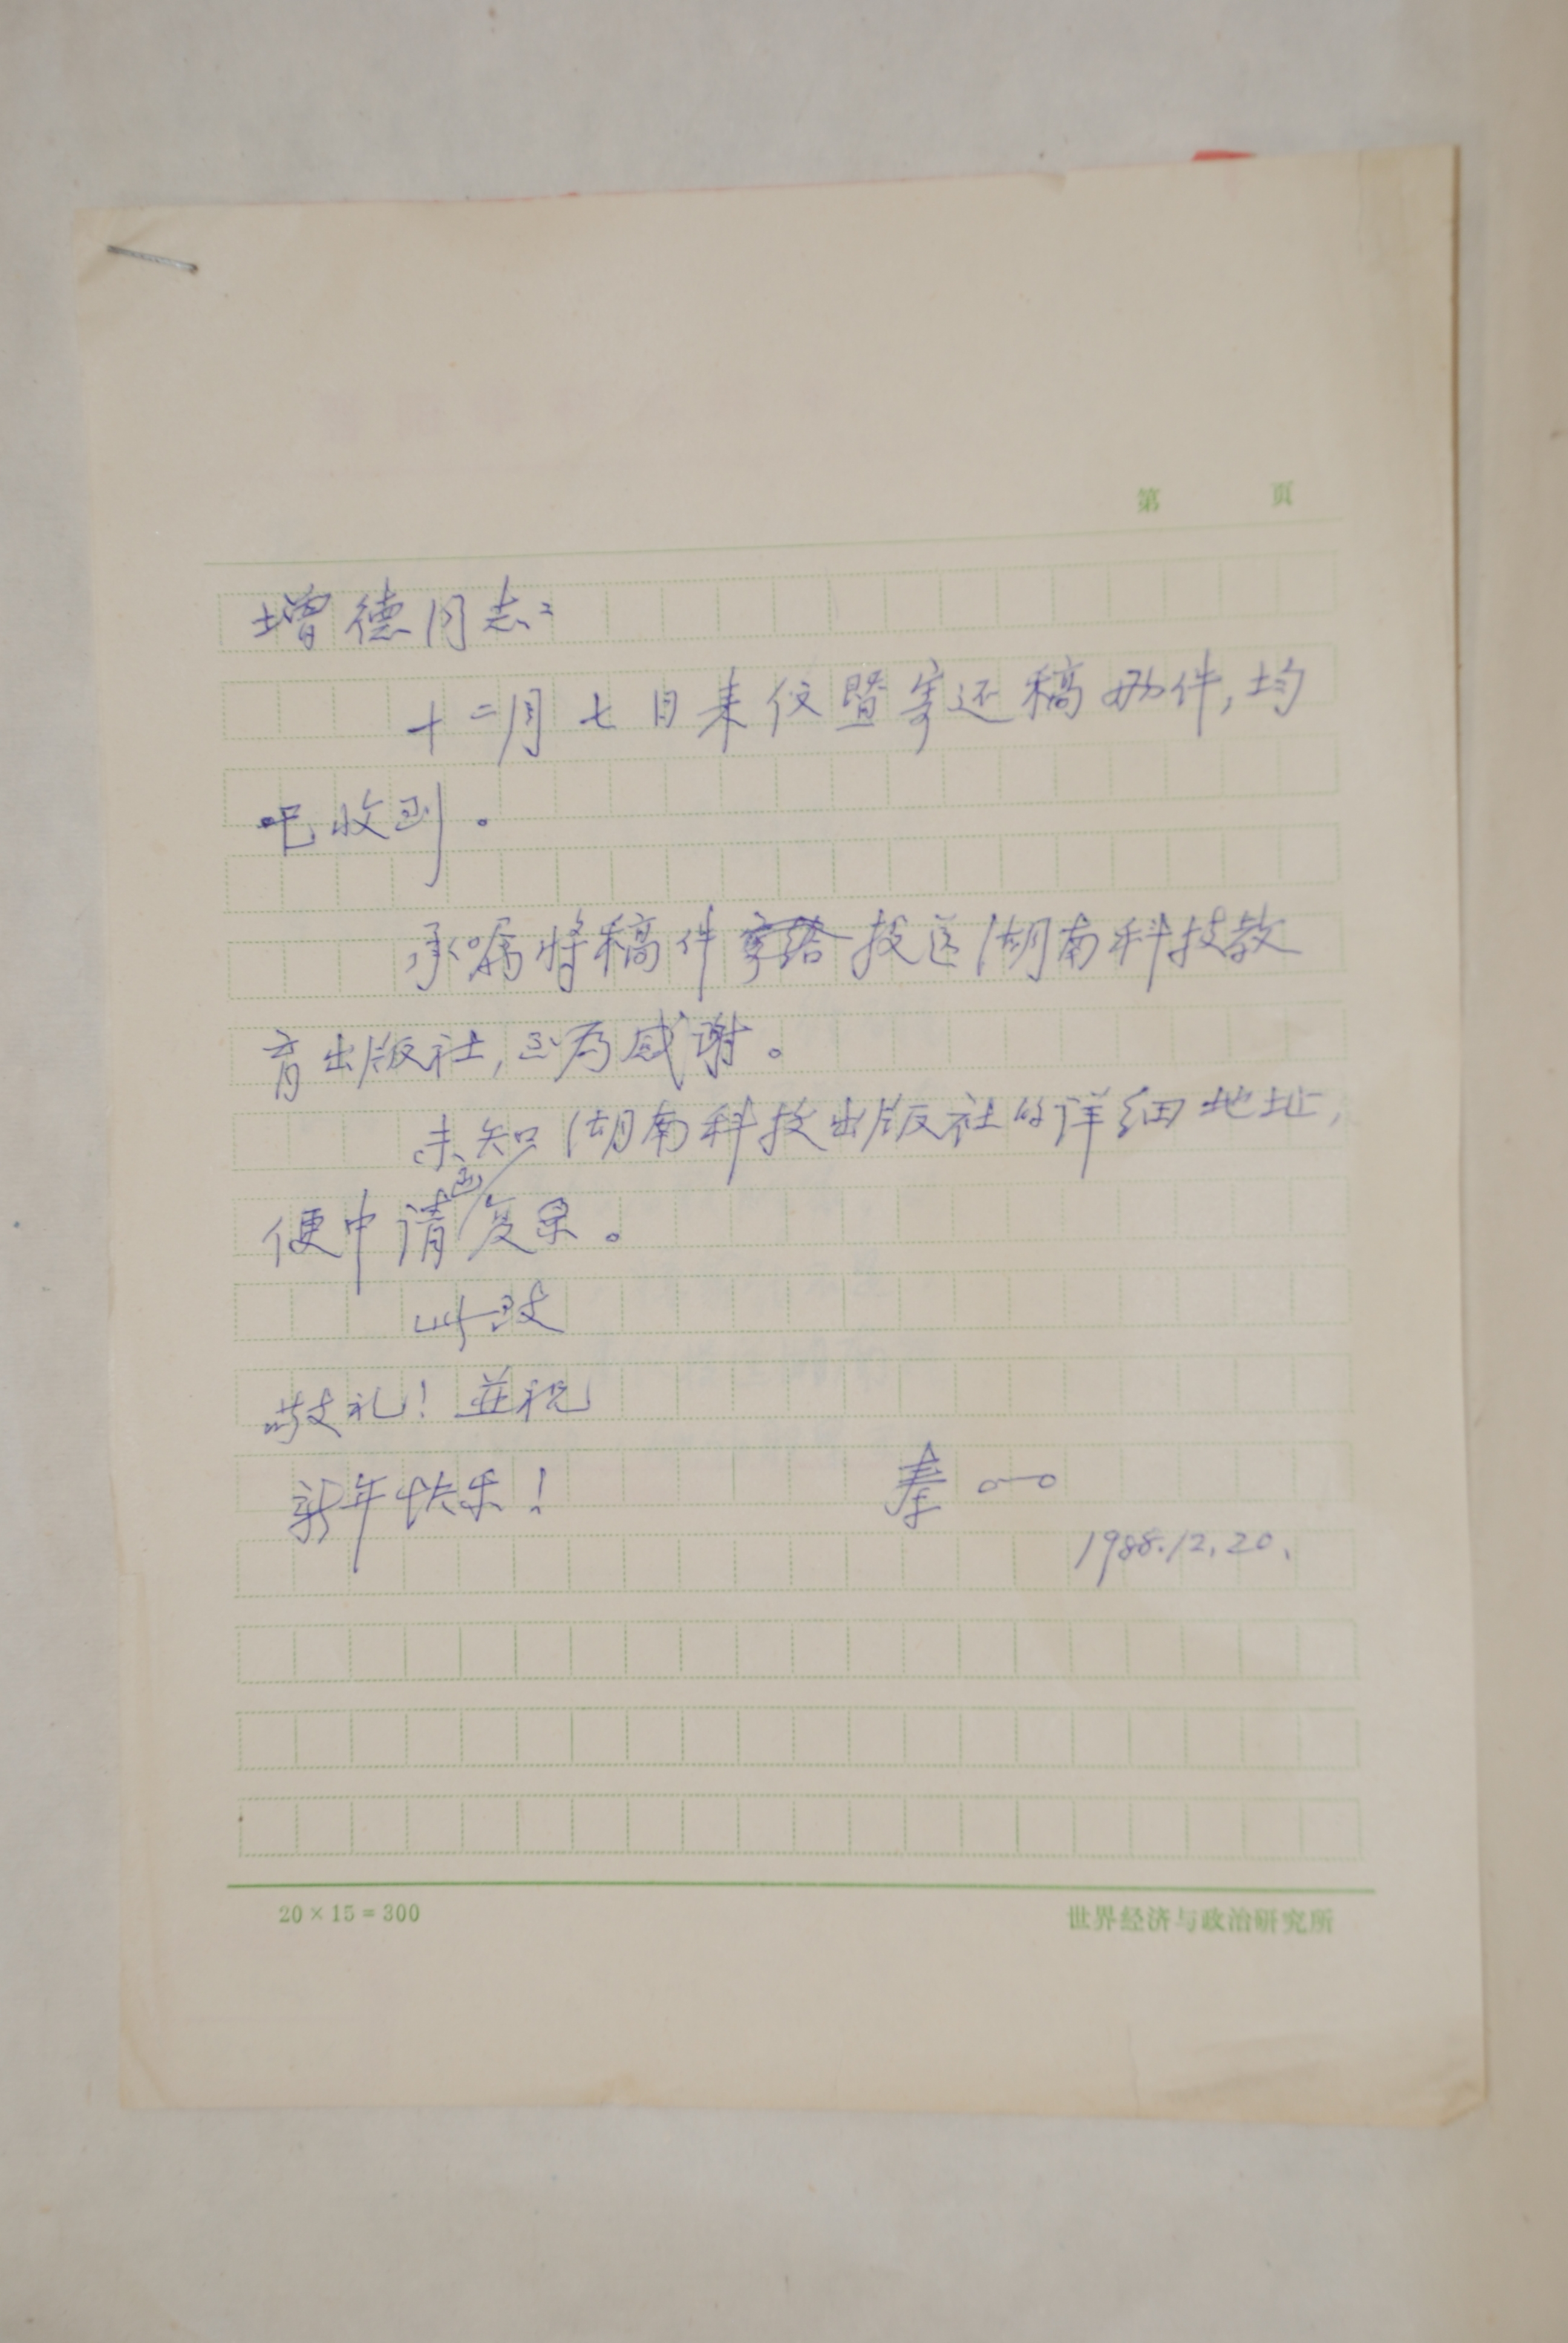 第 页
增德同志：
十二月七日来仪暨寄还稿两件，均
已收到。
承嘱将稿件投送湖南科技教
育出版社，至为感谢。
未知湖南科技出版社的详细地址，
便中请函复示。
此致
敬礼！并祝
新年快乐！
秦
1988.12.20.
20×15=300 世界经济与政治研究所